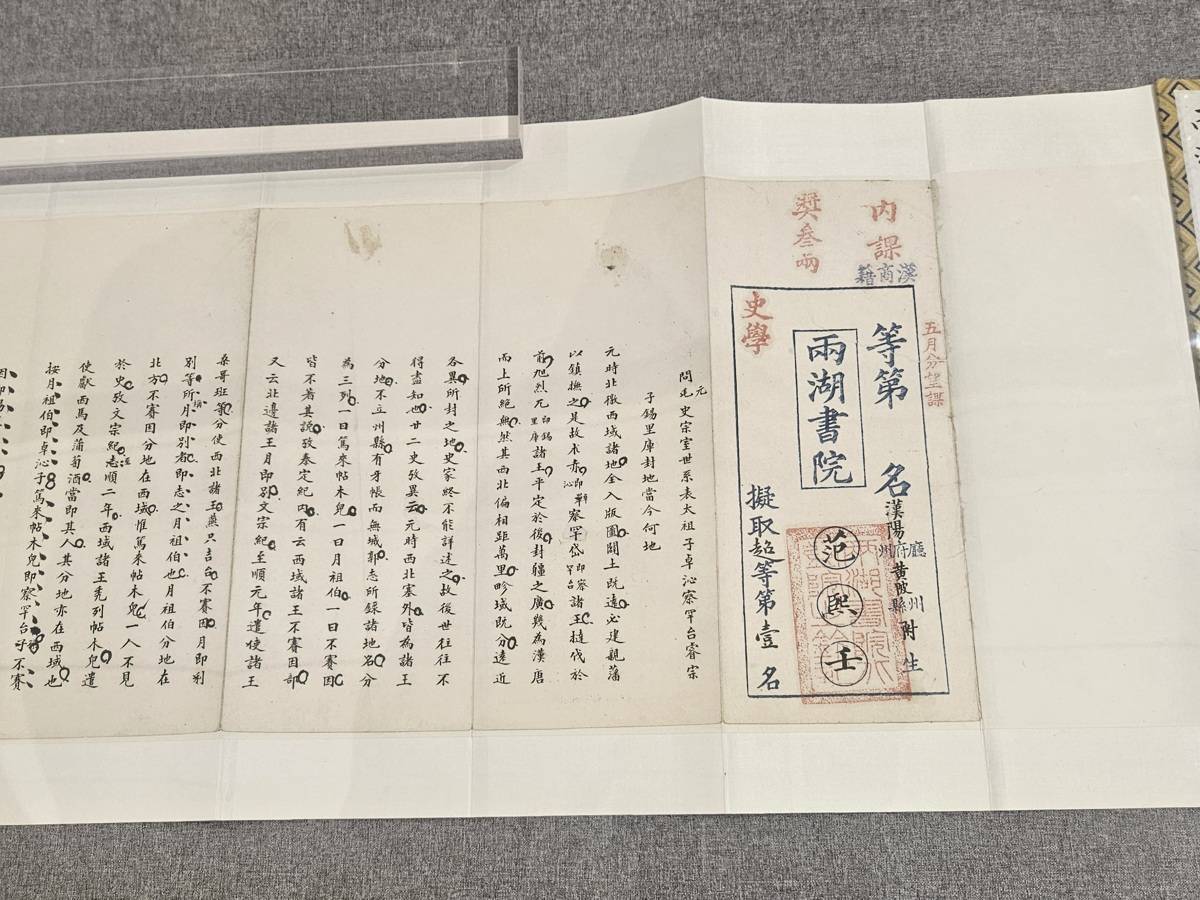 五月分望課
內課
獎叄兩
漢商籍
等第 名
漢陽府黃陂縣附生
廳州州
兩湖書院
范熙壬
史學
擬取超等第壹名
問元史宗室世系表太祖子卓沁察罕台睿宗
子錫里庫封地當今何地
元時北徼西域諸地全入版圖闢土既遠必建親藩
以鎮撫之是故朮赤即卓沁察罕岱即察罕台諸王撻伐於
前旭烈兀即錫里庫諸王平定於後封疆之廣幾為漢唐
而上所絕無然其西北偏相距萬里畛域既分遠近
各異所封之地史家終不能詳述之故後世往往不
得盡知也廿二史攷異云元時西北塞外皆為諸王
分地不立州縣有牙帳而無城郭志所錄諸地名分
為三列一曰篤來帖木兒一曰月祖伯一曰不賽因
皆不著其說攷泰定紀內有云西域諸王不賽因部
又云北邊諸王月即別文宗紀至順元年遣使諸王
桑哥班等分使西北諸王燕只吉台不賽因月即別
別等所稱月即別者即志之月祖伯也月祖伯分地在
北方不賽因分地在西域惟篤來帖木兒一人不見
於史攷文宗紀至順二年西域諸王禿列帖木兒遣
使獻西馬及蒲萄酒當即其人其分地亦在西域也
按月祖伯即卓沁子篤來帖木兒即察罕台子不賽